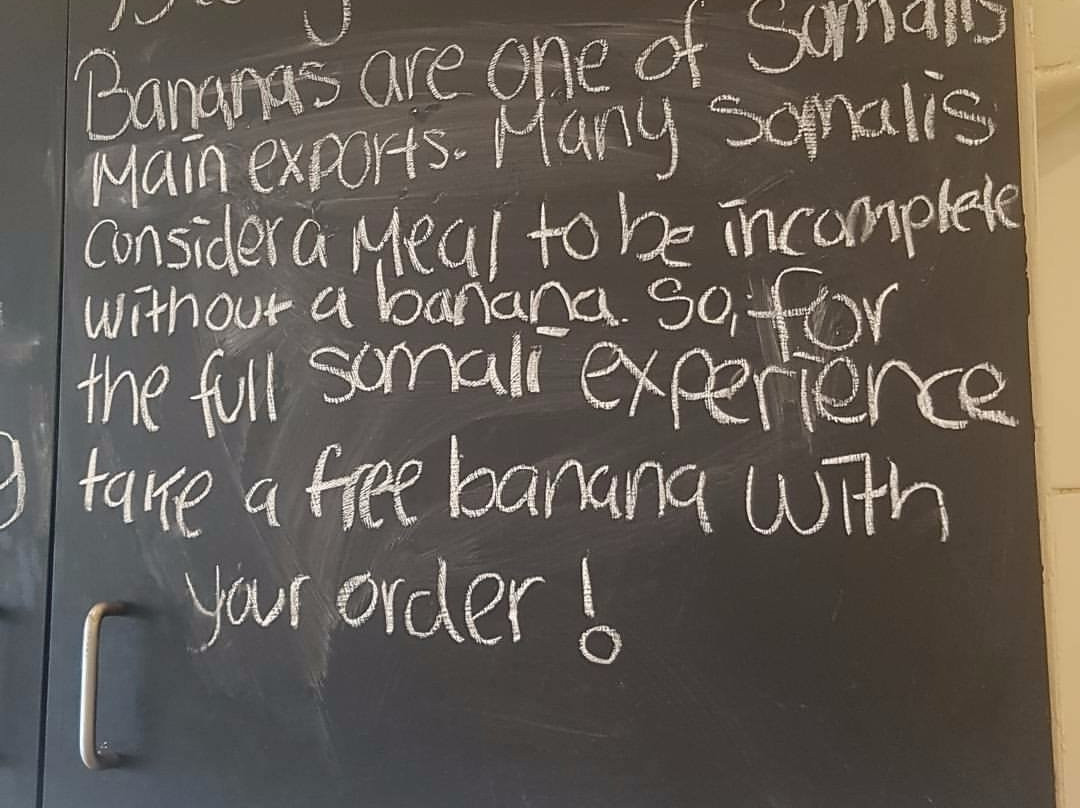 Bananas are one of Somalis
Main exports. Many Somalis
consider a Meal to be incomplete
without a banana. So, for
the full somali experience
take a free banana with
your order!